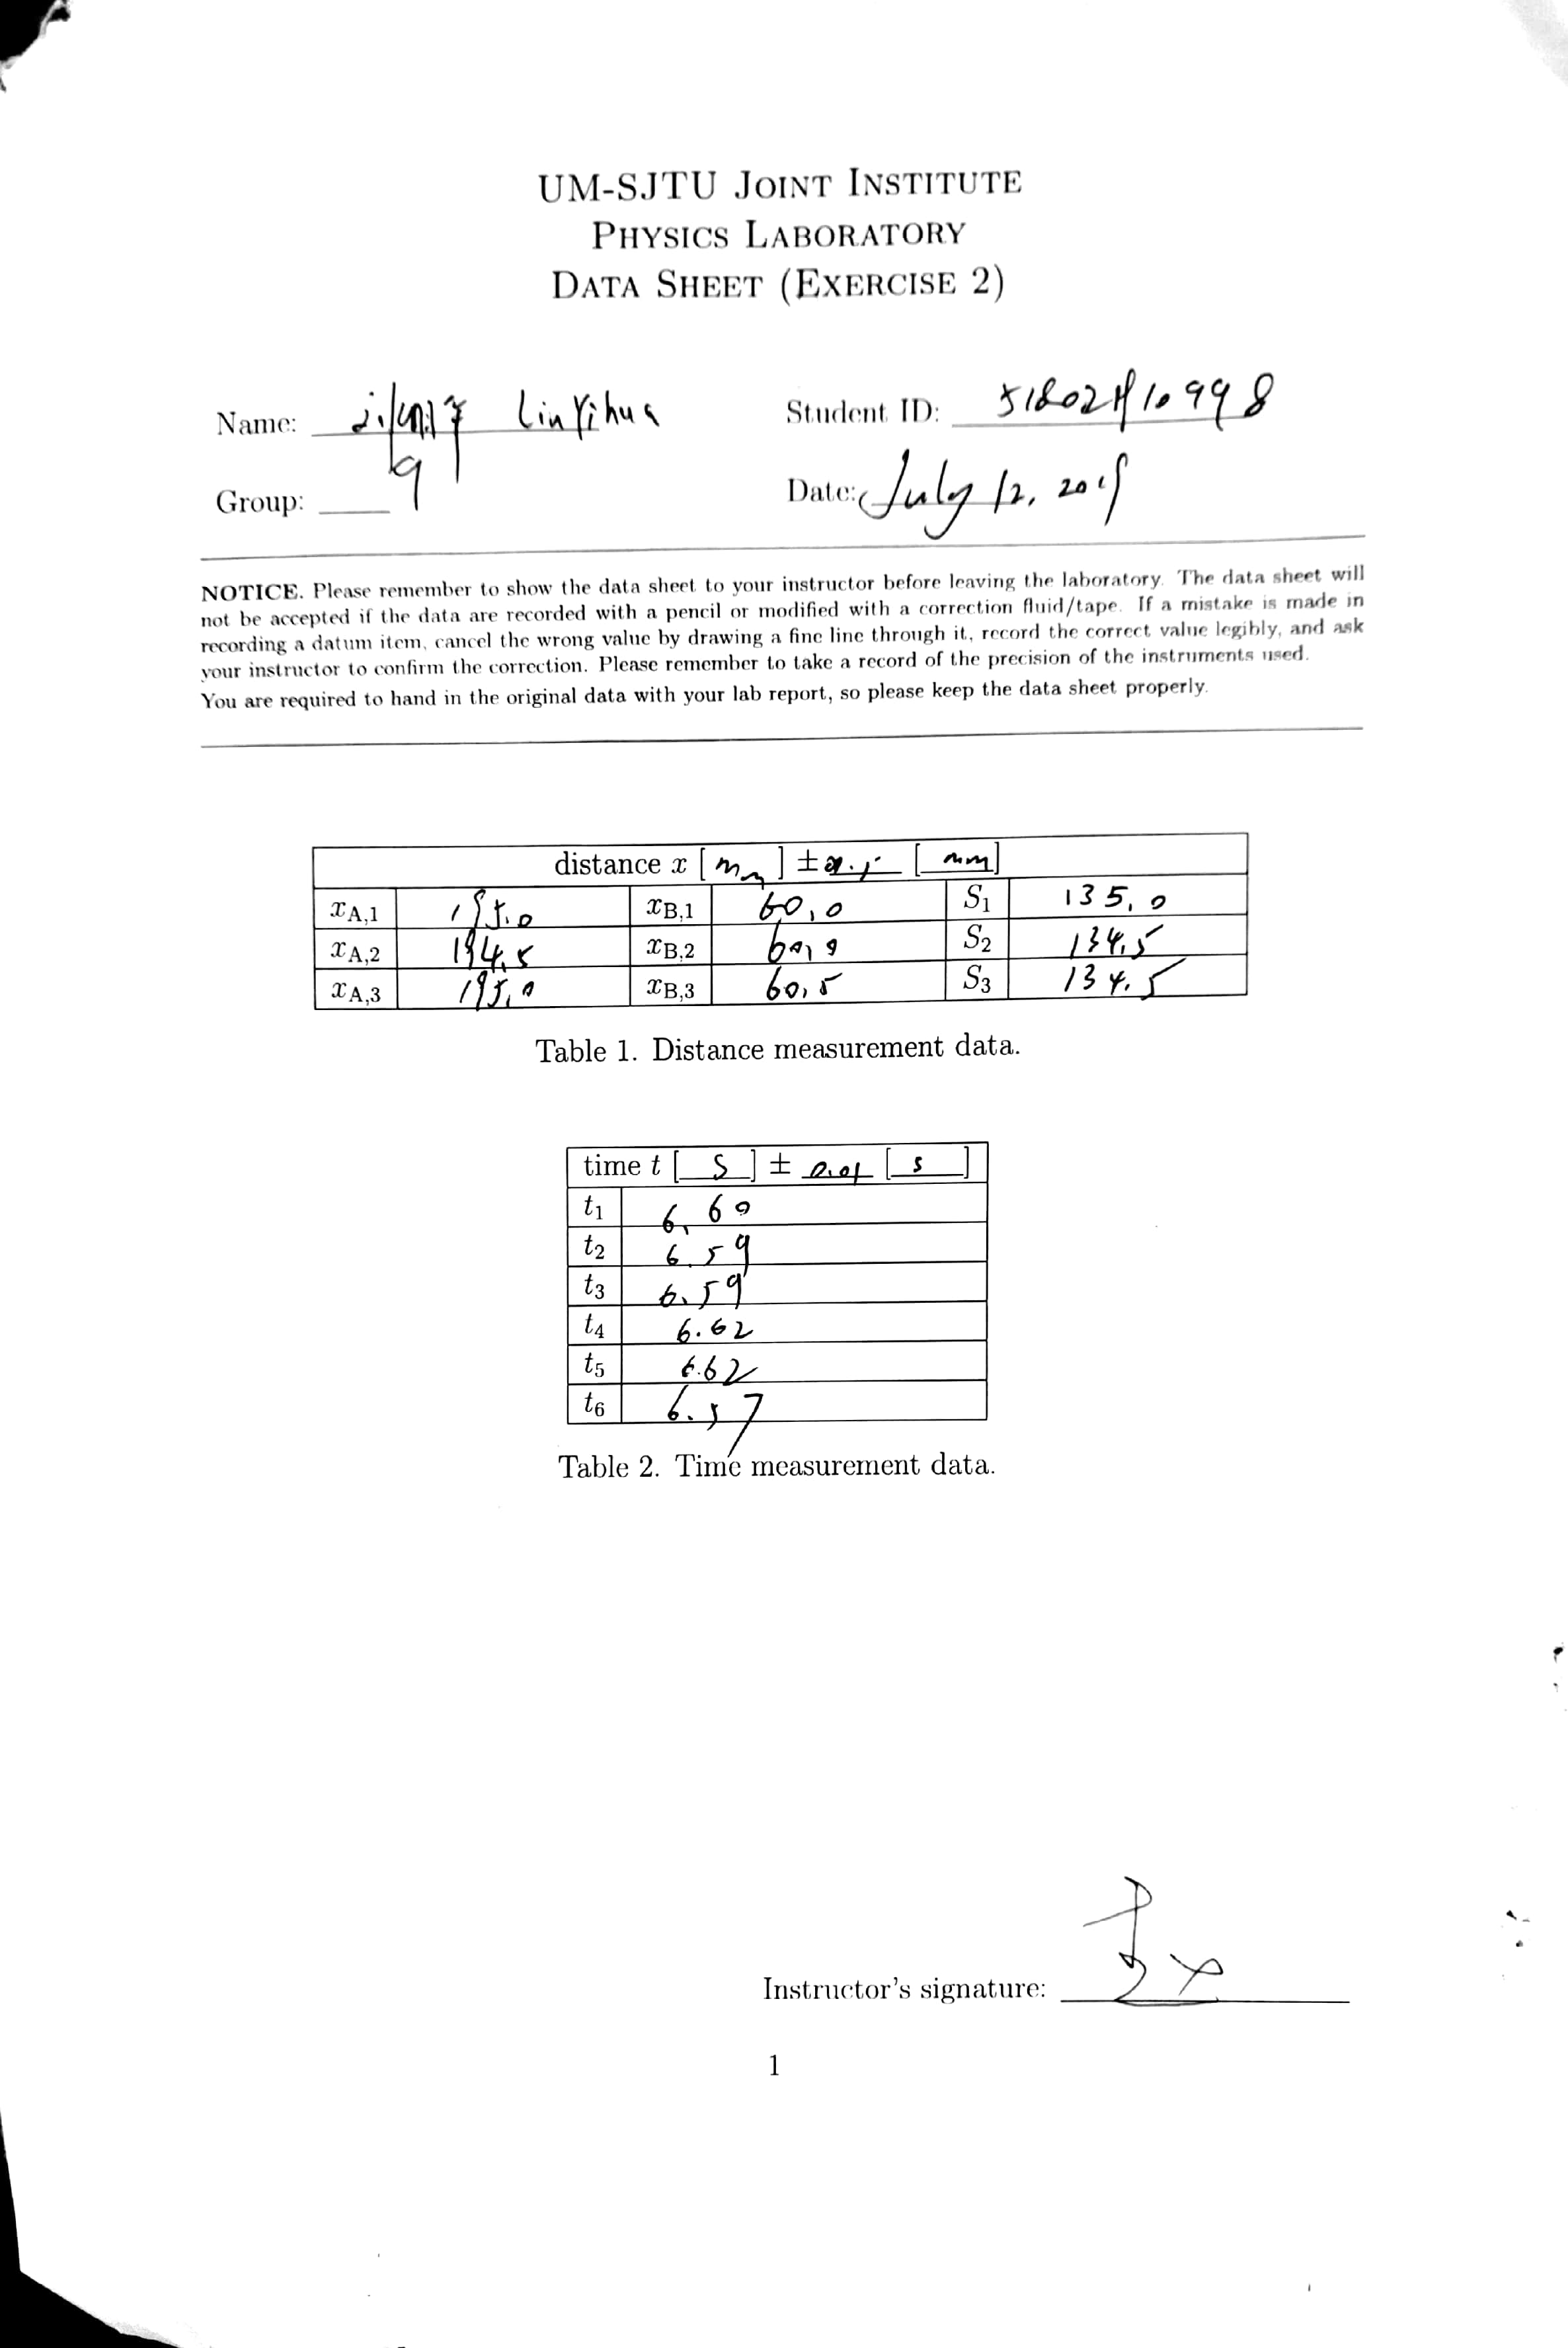 UM-SJTU JOINT INSTITUTE
PHYSICS LABORATORY
DATA SHEET (EXERCISE 2)
Name: Lin Yihua Student ID:
Group: 9 Date: July 12, 2019
NOTICE. Please remember to show the data sheet to your instructor before leaving the laboratory. The data sheet will
not be accepted if the data are recorded with a pencil or modified with a correction fluid/tape. If a mistake is made in
recording a datum item, cancel the wrong value by drawing a fine line through it, record the correct value legibly, and ask
your instructor to confirm the correction. Please remember to take a record of the precision of the instruments used.
You are required to hand in the original data with your lab report, so please keep the data sheet properly.
distance x [mm] ± [mm]
xA,1 195.0 xB,1 60.0 S1 135.0
xA,2 194.5 xB,2 60.0 S2 134.5
xA,3 195.0 xB,3 60.5 S3 134.5
Table 1. Distance measurement data.
time t [ S ] ± 0.01 [ s ]
t1 6.60
t2 6.59
t3 6.59
t4 6.62
t5 6.62
t6 6.57
Table 2. Time measurement data.
Instructor's signature:
1